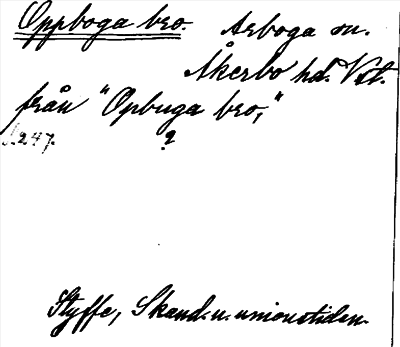 Oppboga bro. Arboga sn.
Åkerbo hd. Vstl.
från "Opbuga bro,"
s. 247. ?
Styffe, Skand. u. unionstiden.